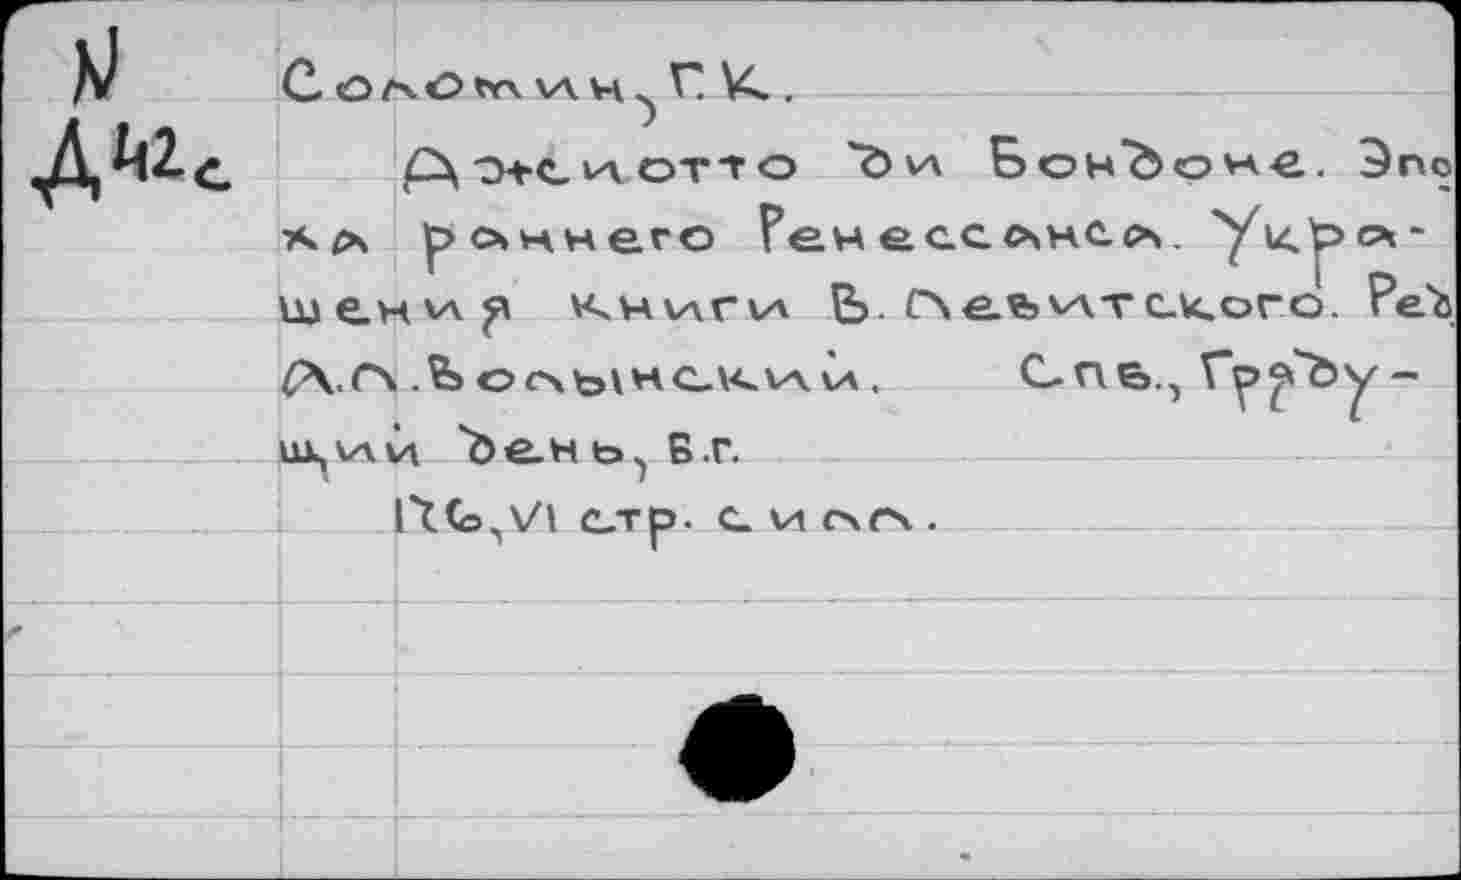 N
Соломин, Г.К.
Д42с
Джиотто ди Бондоне. Эпо
ха раннего Ренессанса. Укра-
шения книги В. Левитского. Ред
А.Л. Волынский. Спб., Гряду-
щий день, Б.г.
116, VI стр. с илл.